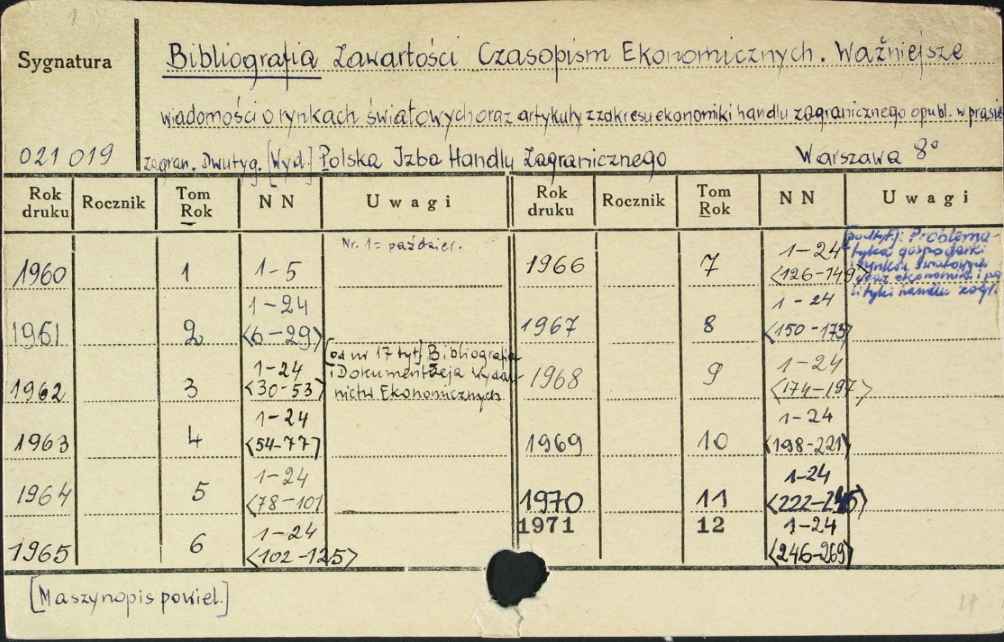 Sygnatura
Bibliografia Zawartości Czasopism Ekonomicznych. Ważniejsze
wiadomości o rynkach światowych oraz artykuły z zakresu ekonomiki handlu zagranicznego opubl. w prasie
021 019 zagran. Dwutyg. [Wyd.] Polska Izba Handlu Zagranicznego Warszawa 8°
Rok druku Rocznik Tom Rok NN Uwagi Rok druku Rocznik Tom Rok NN Uwagi
1960 1 1-5 Nr. 1 = paździer.
1961 2 1-24 <6-29>
1962 3 1-24 <30-53> [od nr 17 tyt.] Bibliografia
i Dokumentacja Wydaw-
nictw Ekonomicznych
1963 4 1-24 <54-77>
1964 5 1-24 <78-101
1965 6 1-24 <102-125>
1966 7 1-24 <126-149> [podtyt.]: Problema-
tyka gospodarki
rynków światowych
oraz ekonomiki i po
lityki handlu zagr.
1967 8 1-24 <150-173>
1968 9 1-24 <174-197>
1969 10 1-24 <198-221>
1970 11 1-24 <222-245>
1971 12 1-24 <246-269>
[Maszynopis powiel.]